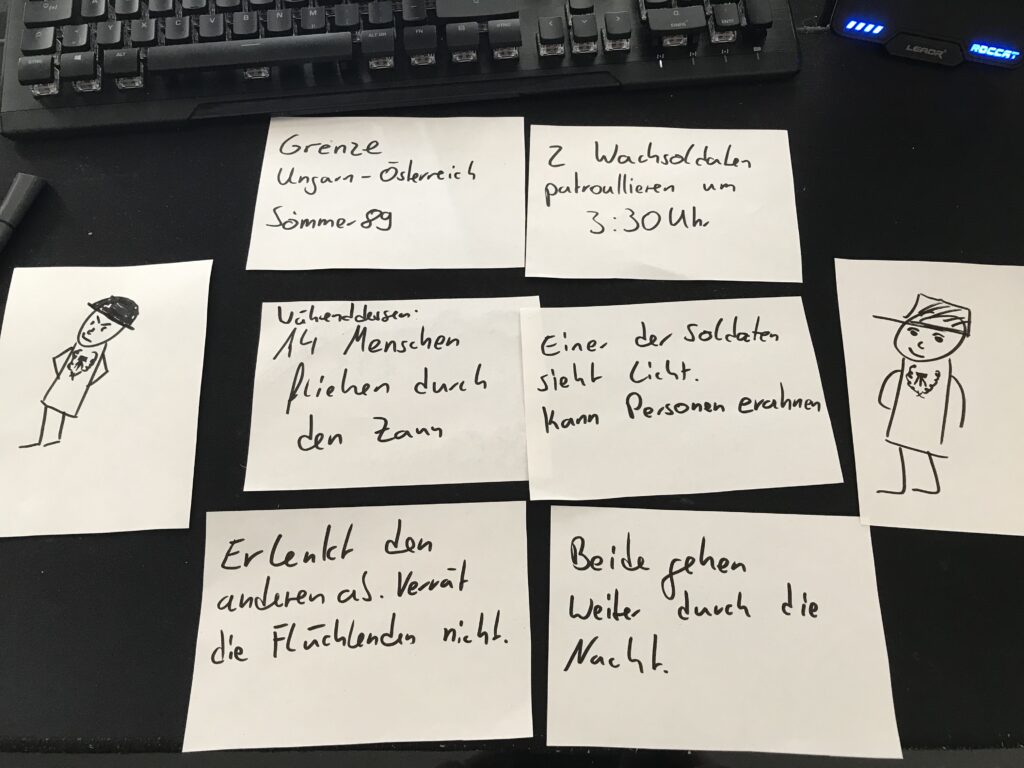 Grenze
Ungarn-Österreich
Sommer 89
2 Wachsoldaten
patroullieren um
3:30 Uhr
Währenddessen:
14 Menschen
fliehen durch
den Zaun
Einer der Soldaten
sieht Licht.
Kann Personen erahnen
Er lenkt den
anderen ab. Verrät
die Flüchtenden nicht.
Beide gehen
weiter durch die
Nacht.
LEADR
ROCCAT
ALT
ALT GR
FN
STRG